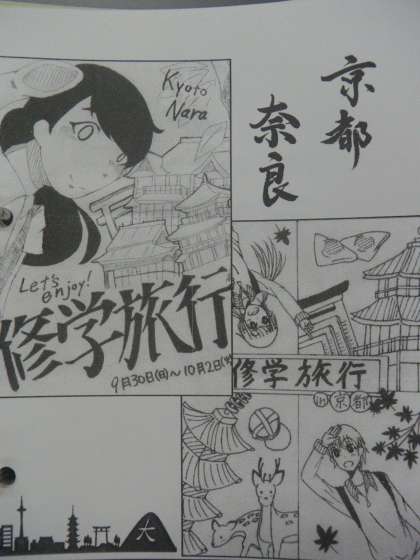 Kyoto
Nara
Let's
enjoy!
修学旅行
9月30日(日)〜10月2日(火
京都
奈良
修学旅行
in京都
大